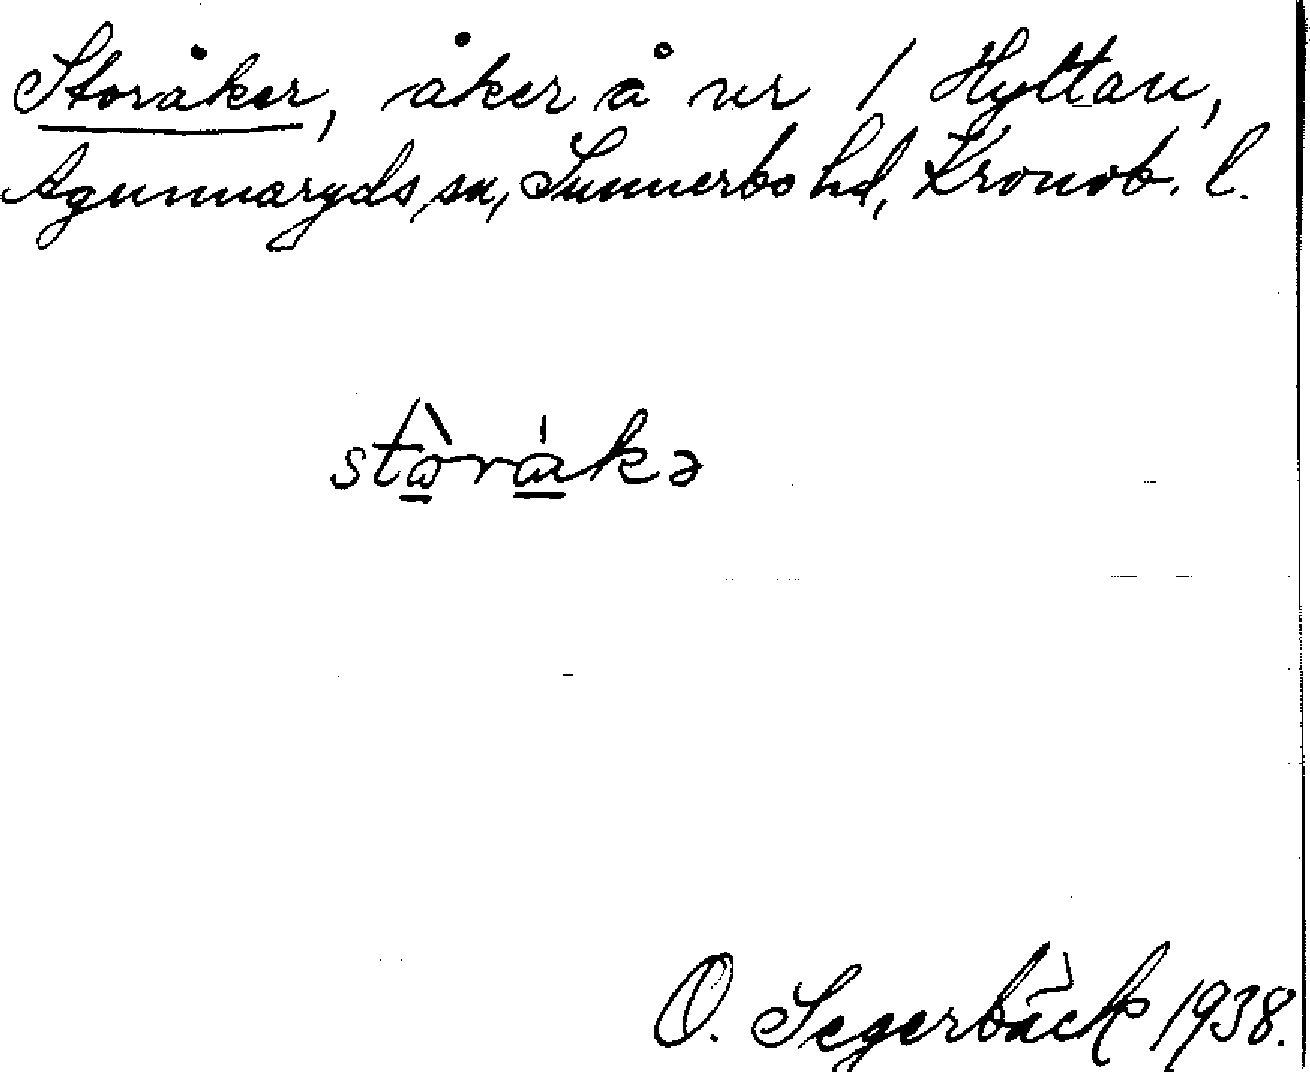 Storåker, åker å nr 1 Hyltan,
Agunnaryds sn, Sunnerbo hd, Kronob. l.
O. Segerbäck 1938.